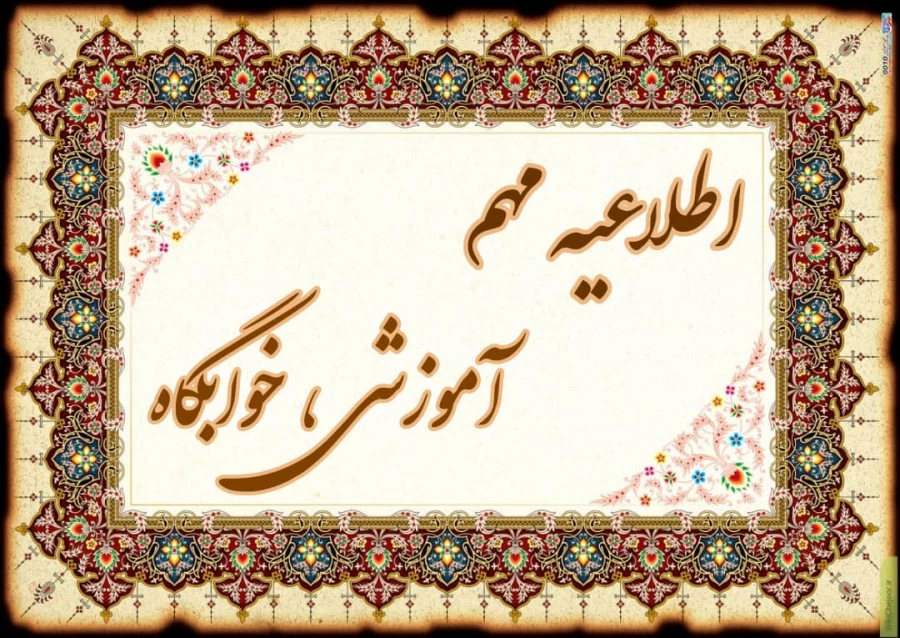 اطلاعیه مهم
آموزش، خوابگاه